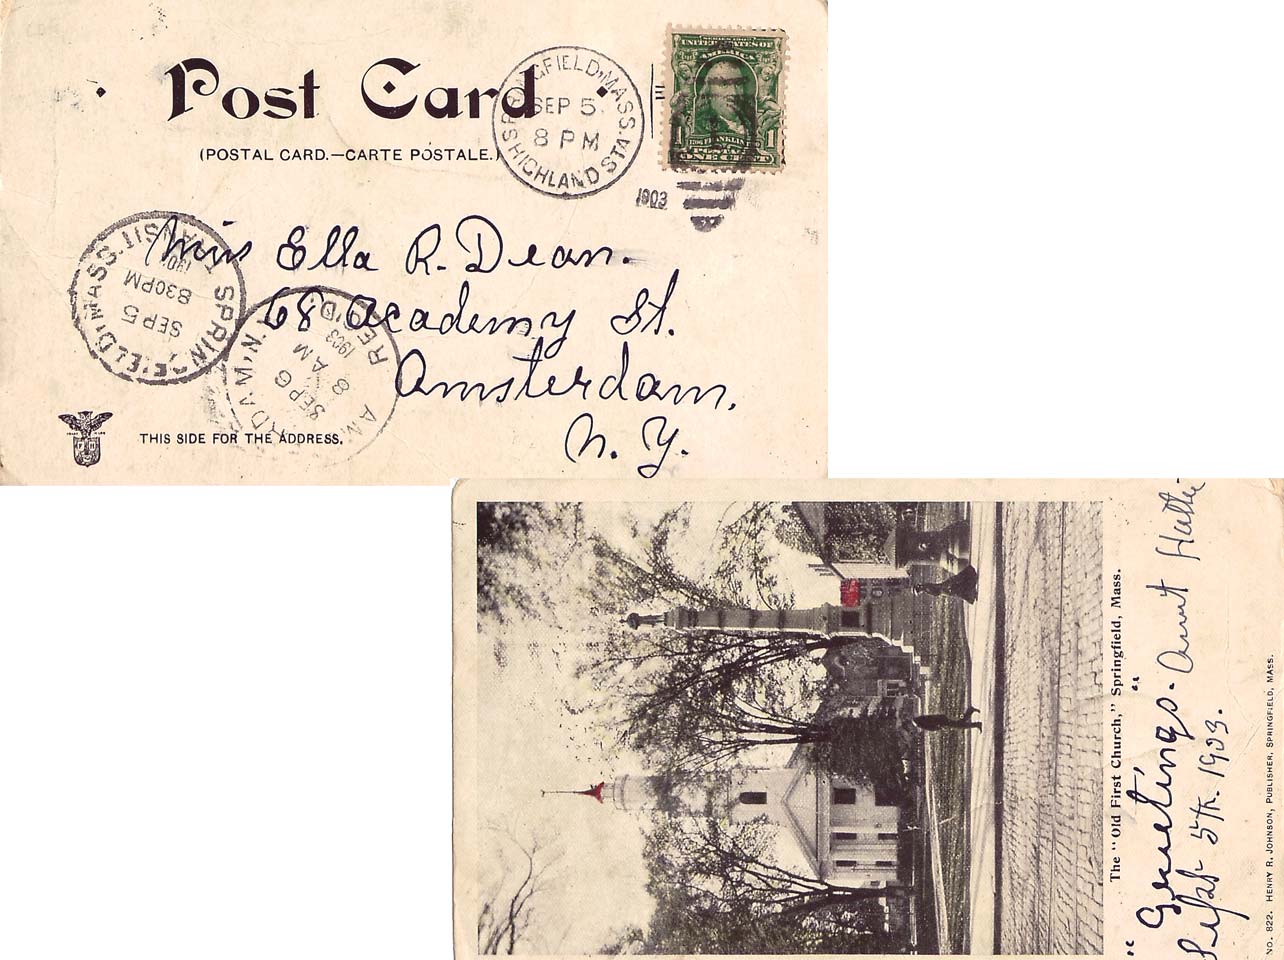 Post Card
(POSTAL CARD.—CARTE POSTALE.)
SPRINGFIELD, MASS.
SEP 5
8 PM
HIGHLAND STA.
1903
SERIES 1902
UNITED STATES OF
AMERICA
1 FRANKLIN 1
ONE CENT
Miss Ella R. Dean.
68 Academy St.
Amsterdam.
N. Y.
SPRINGFIELD, MASS. TRANSIT
SEP 5
830PM
REC'D.
SEP 6
8 AM
1903
THIS SIDE FOR THE ADDRESS.
The "Old First Church," Springfield, Mass.
"Greetings." Aunt Hattie
Sept 5th. 1903.
NO. 822. HENRY R. JOHNSON, PUBLISHER, SPRINGFIELD, MASS.